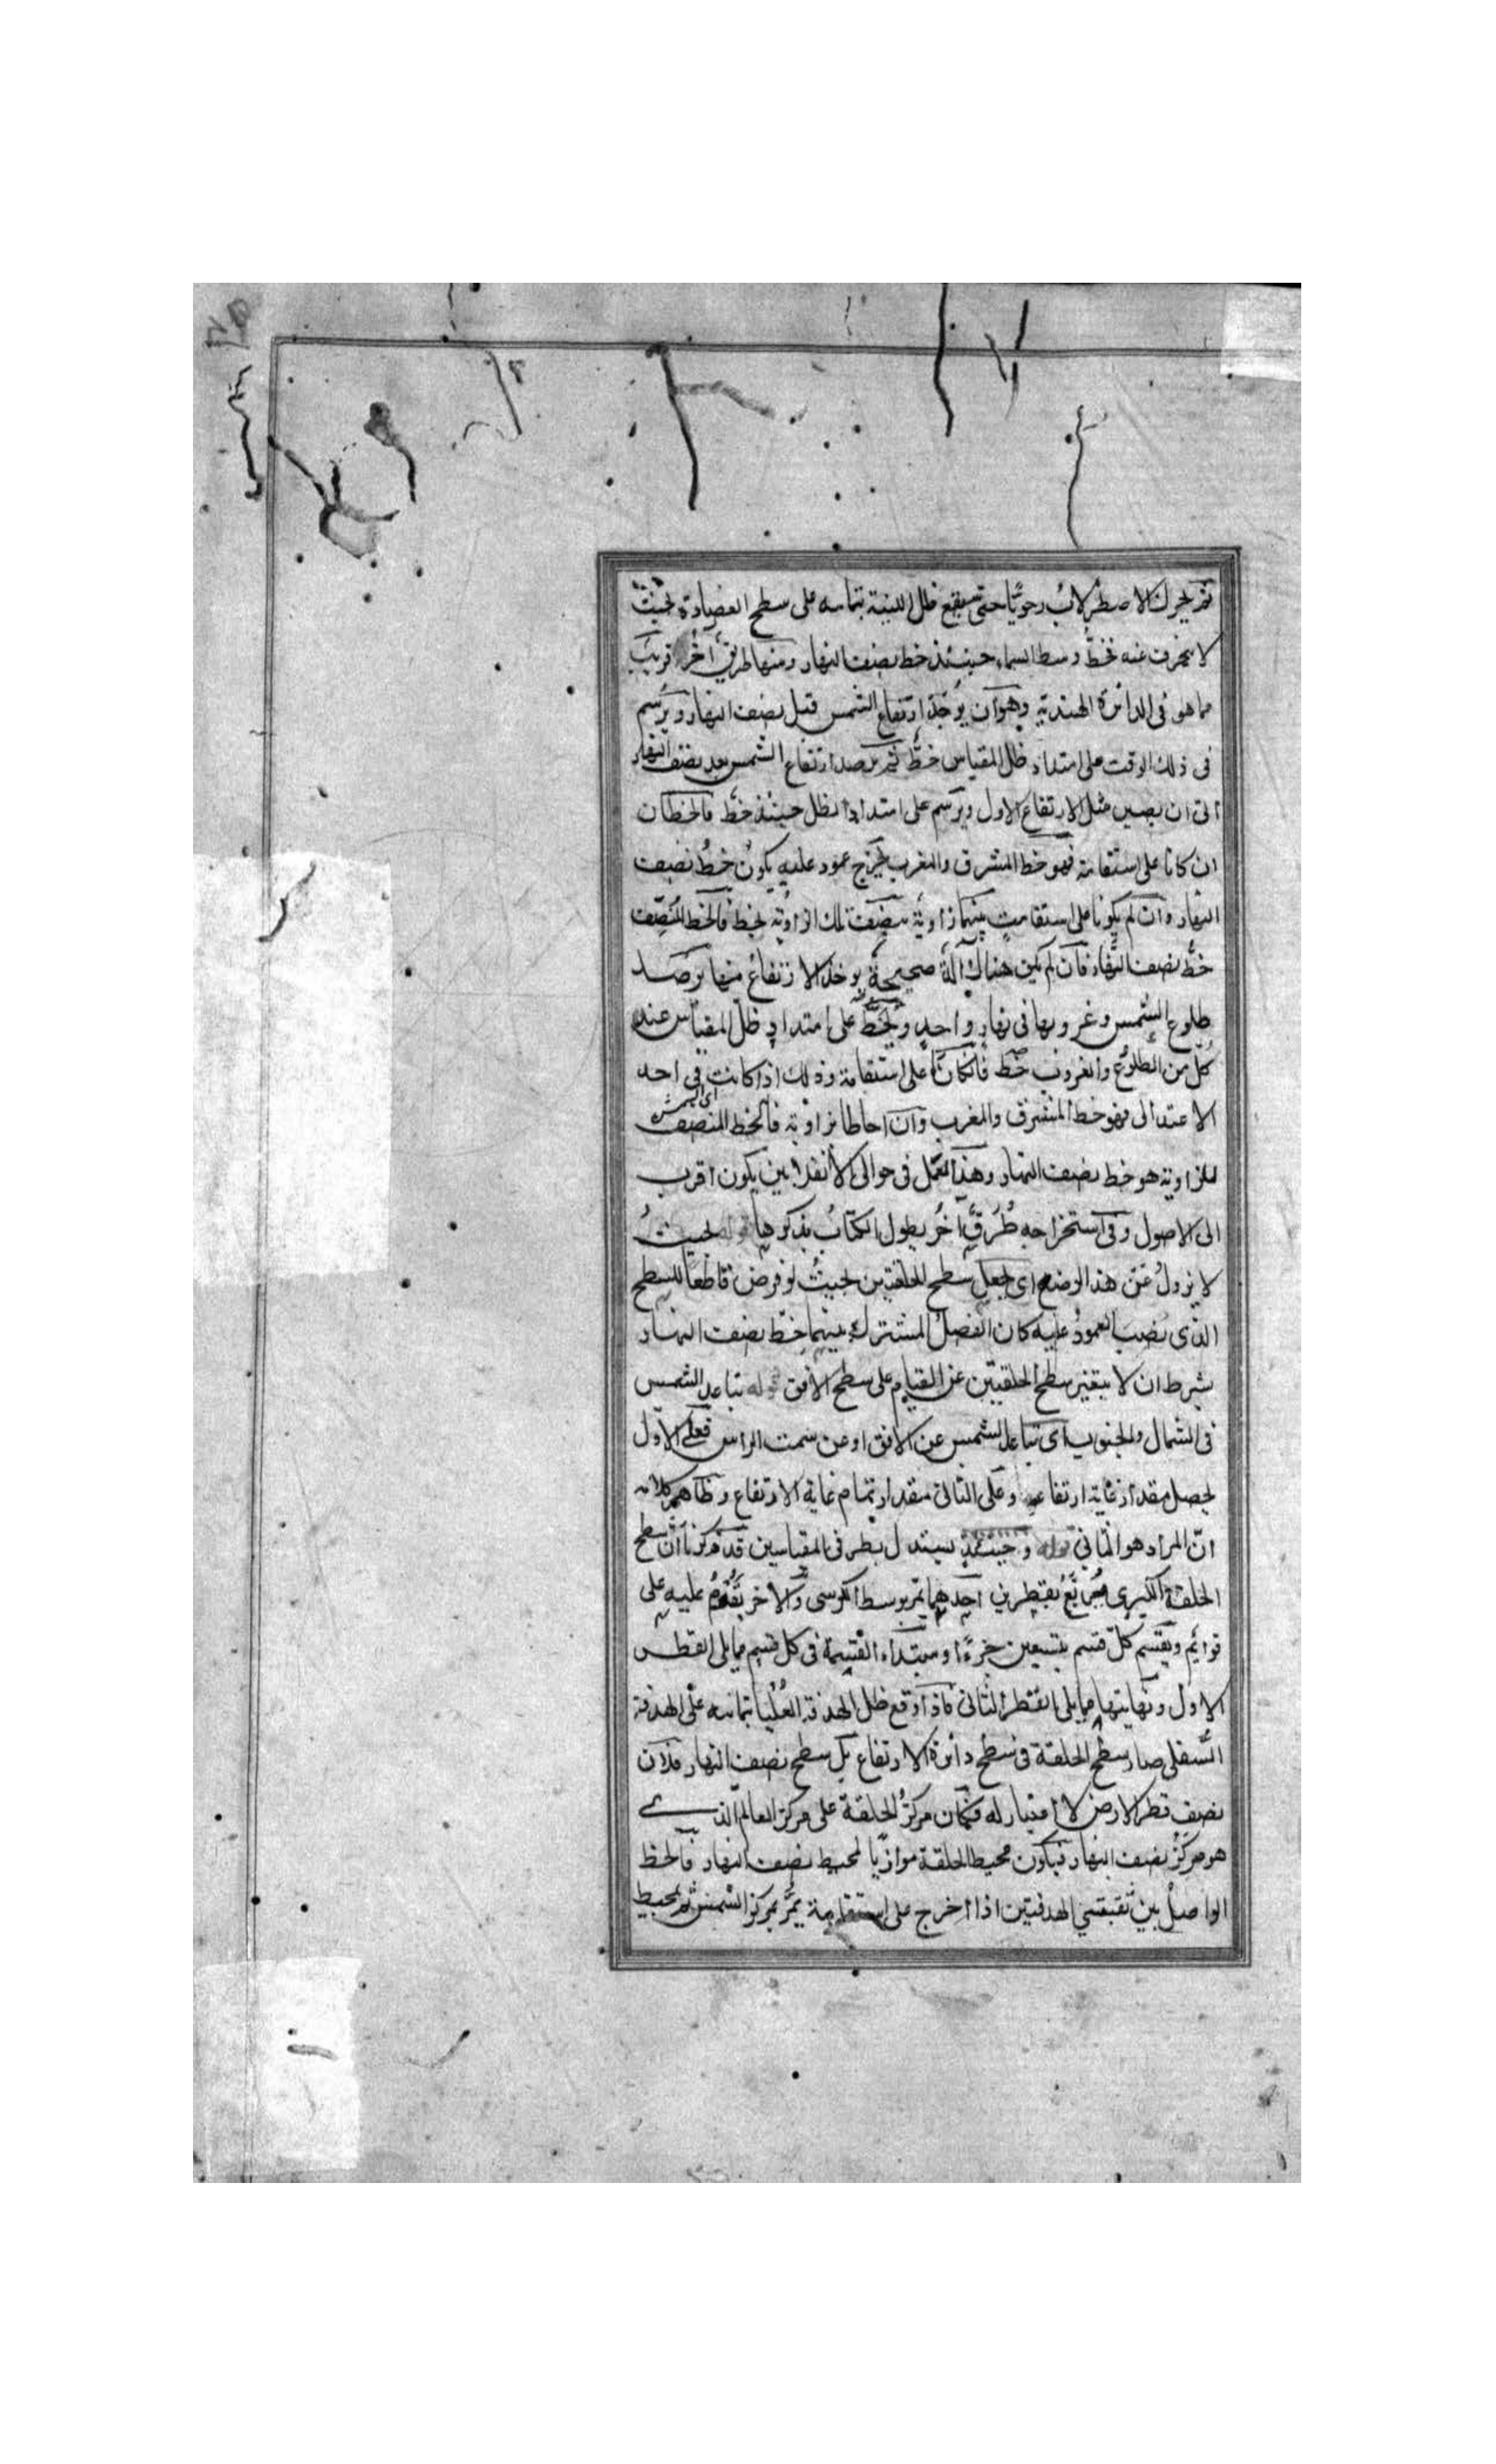 ثم يحرك الاصطرلاب رحويًا حتى يقع ظل اللبنة بتمامه على سطح العضادة بحيث
لا ينحرف عنه فخط وسط السماء حينئذ خط نصف النهار ومنها طريق آخر قريب
مما هو فى الدائرة الهندية وهو ان يؤخذ ارتفاع الشمس قبل نصف النهار ويرسم
فى ذلك الوقت على امتداد ظل المقياس خط ثم يرصد ارتفاع الشمس بعد نصف النهار
الى ان يصير مثل الارتفاع الاول ويرسم على امتداد الظل حينئذ خط فالخطان
ان كانا على استقامة فهو خط المشرق والمغرب يخرج عمود عليه يكون خط نصف
النهار وان لم يكونا على استقامة بينهما زاوية ينصف تلك الزاوية بخط فالخط المنصف
خط نصف النهار فان لم يكن هناك آلة صحيحة يوخذ الارتفاع منها يرصد
طلوع الشمس وغروبها فى نهار واحد ويخط على امتداد ظل المقياس عند
كل من الطلوع والغروب خط فان كانا على استقامة وذلك اذا كانت فى احد
اى الشمس
الاعتدالى فهو خط المشرق والمغرب وان احاطا بزاوية فالخط المنصف
للزاوية هو خط نصف النهار وهذا العمل فى حوالى الانقلابين يكون اقرب
الى الاصول وفى استخراجه طرق آخر يطول الكتاب بذكرها قوله بحيث
لا يزول عن هذا الوضع اى يجعل سطح الحلقتين بحيث لو فرض قاطعا للسطح
الذى نصب العمود عليه كان الفصل المشترك بينهما خط نصف النهار
بشرط ان لا يتغير سطح الحلقتين عن القيام على سطح الافق قوله تباعد الشمس
فى الشمال والجنوب اى تباعد الشمس عن الافق او عن سمت الراس فعلى الاول
يحصل مقدار غاية ارتفاعه وعلى الثانى مقدار تمام غاية الارتفاع وظاهر كلامه
ان المراد هو الثانى قوله وحينئذ يستدل بطرفى المقياسين قد ذكرنا ان سطح
الحلقة الكبرى مربع بقطرين احدهما يمر بوسط الكرسى والآخر يقوم عليه على
قوائم ويقسم كل قسم بتسعين جزءًا ومبتداء القسمة فى كل قسم مما يلى القطر
الاول ونهايتها مما يلى القطر الثانى فاذا وقع ظل الهدفة العليا بتمامه على الهدفة
السفلى صار سطح الحلقة فى سطح دائرة الارتفاع بل سطح نصف النهار فلان
نصف قطر الارض لا اعتبار له فكان مركز الحلقة على مركز العالم الذى
هو مركز نصف النهار فيكون محيط الحلقة موازيًا لمحيط نصف النهار فالخط
الواصل بين ثقبتى الهدفتين اذا اخرج على استقامة يمر بمركز الشمس ثم بمحيط